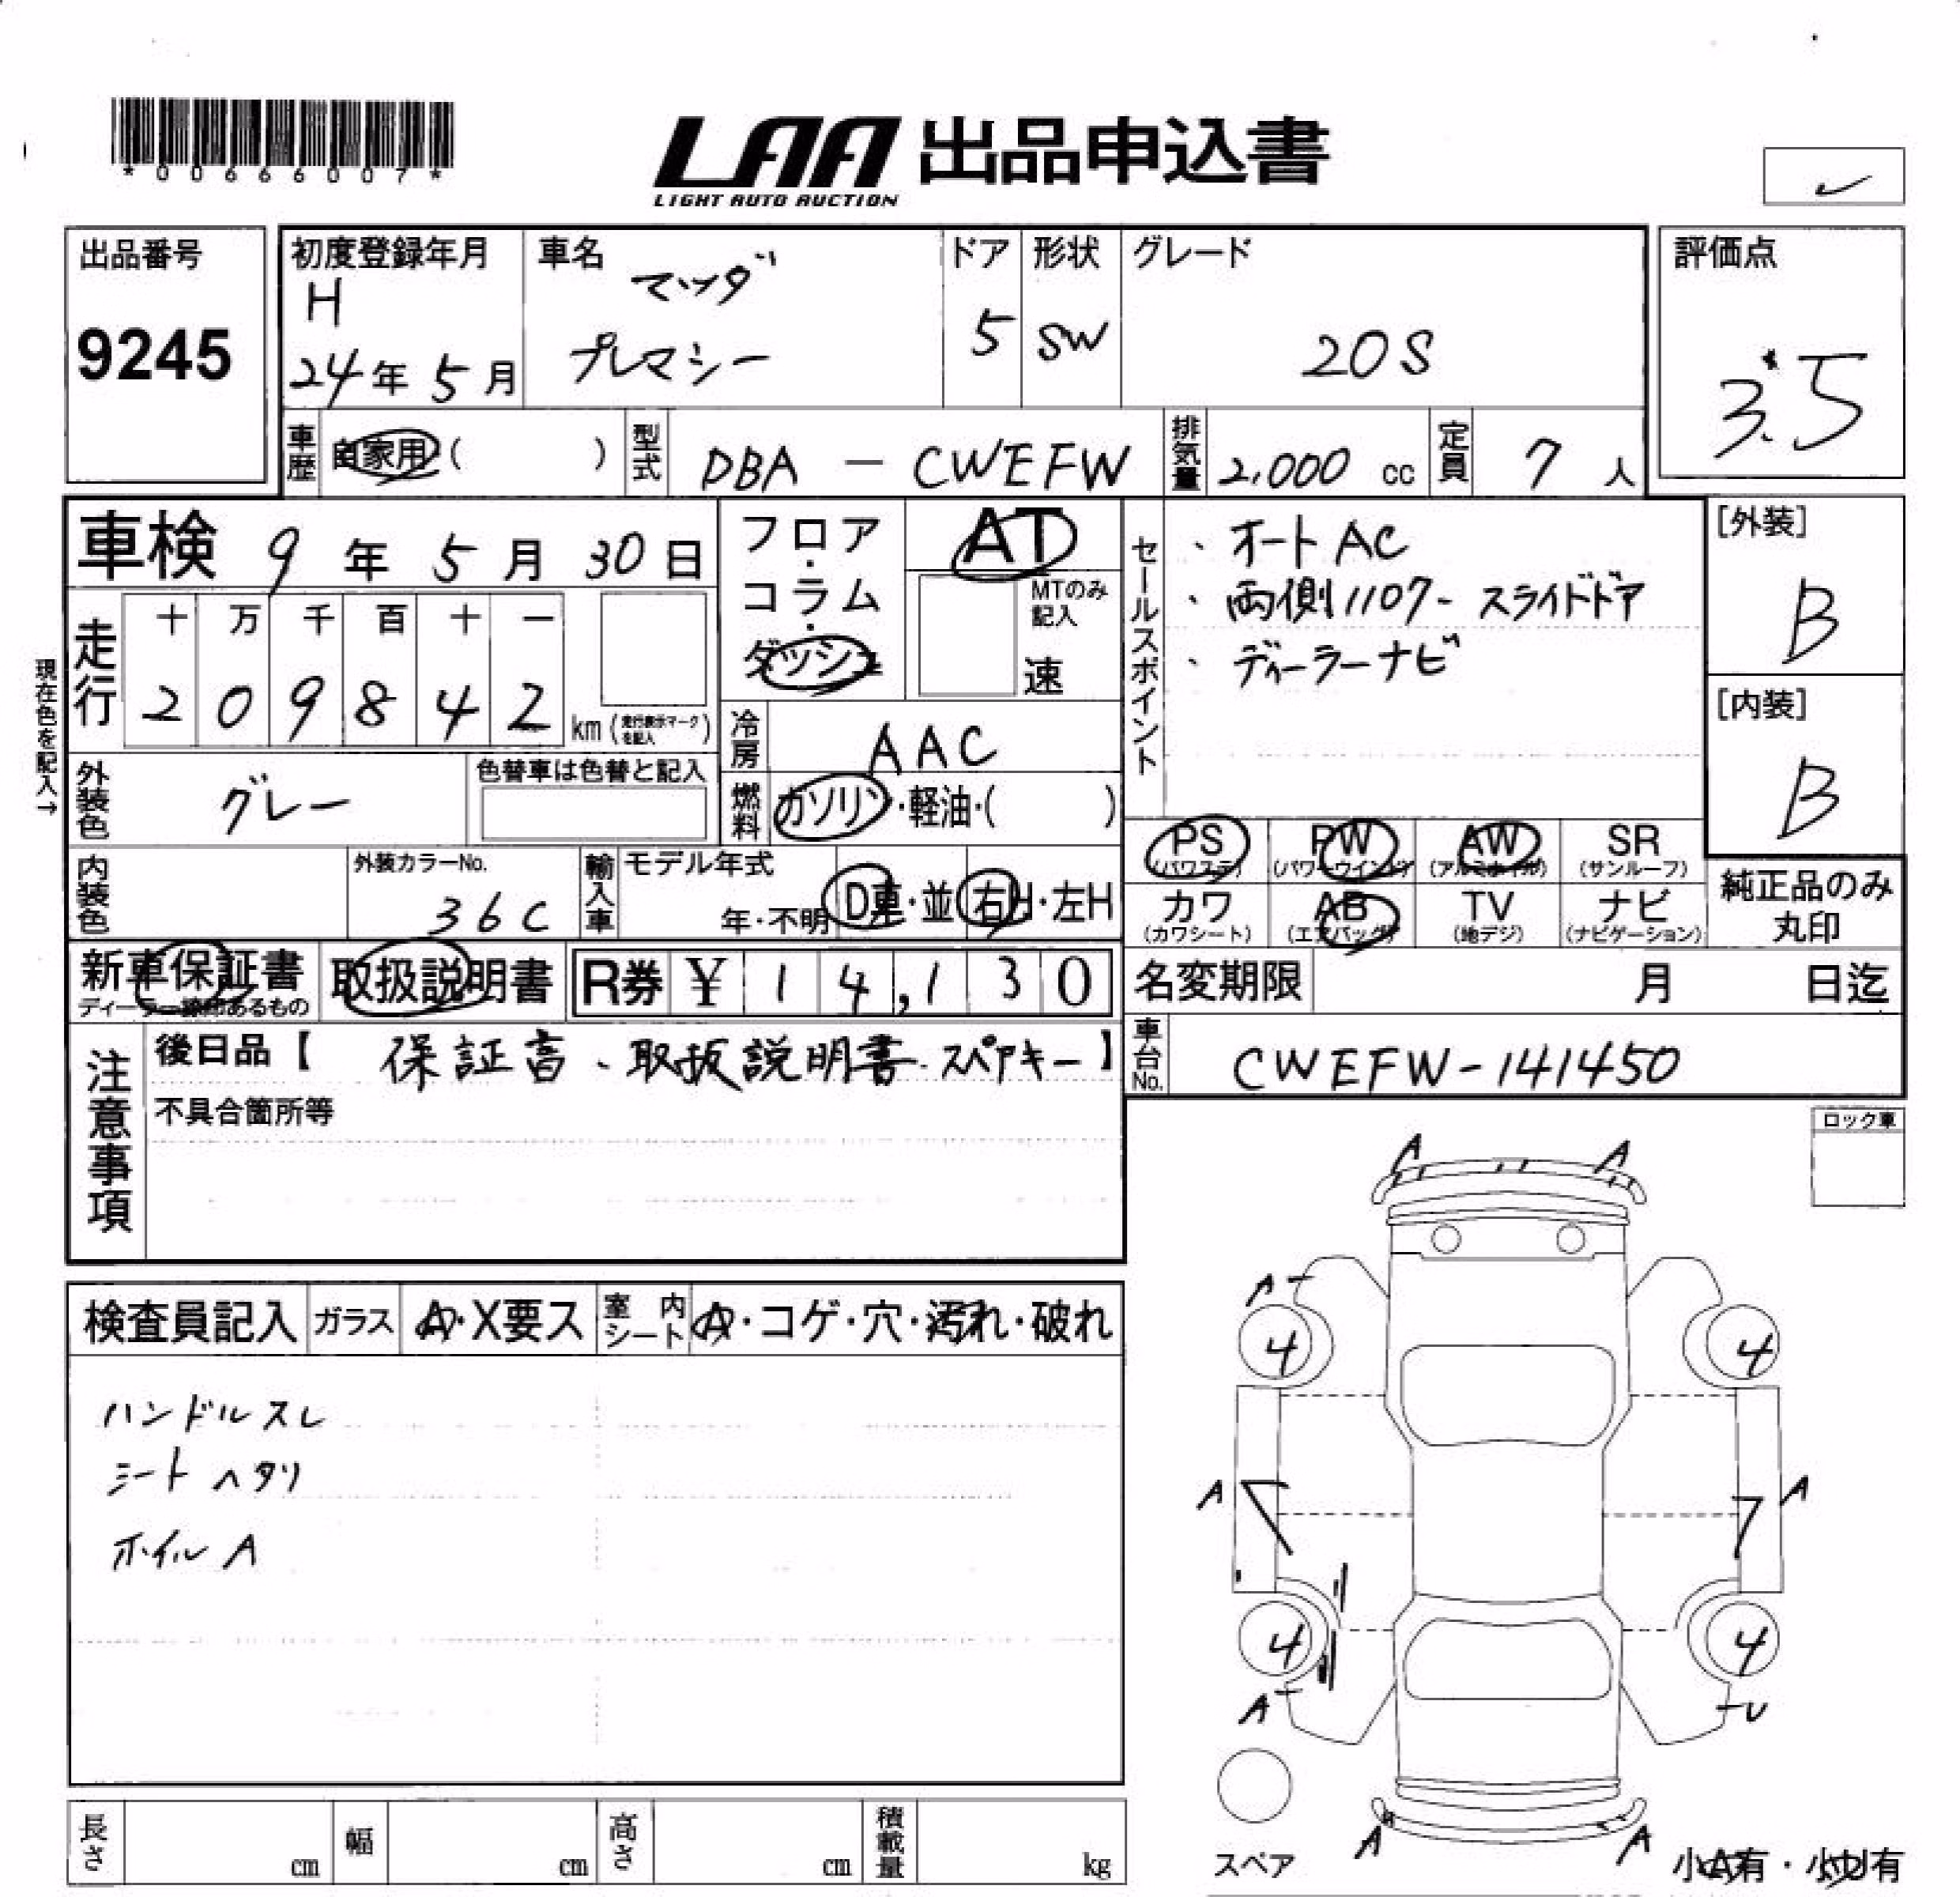 *00666007*
LAA 出品申込書
LIGHT AUTO AUCTION
出品番号
9245
初度登録年月
H
24年 5月
車名
マツダ
プレマシー
ドア
5
形状
SW
グレード
20S
評価点
3.5
車歴 自家用 ( )
型式 DBA - CWEFW
排気量 2,000 cc
定員 7 人
車検 9年 5月 30日
フロア・コラム・ダッシュ
AT
MTのみ記入
速
セールスポイント
・オートAC
・両側パワースライドドア
・ディーラーナビ
[外装]
B
[内装]
B
現在色を記入→
走行
十 万 千 百 十 一
2 0 9 8 4 2
km (走行表示マークを記入)
冷房 AAC
外装色 グレー
色替車は色替と記入
燃料 ガソリン・軽油・( )
PS (パワステ)
PW (パワーウインド)
AW (アルミホイル)
SR (サンルーフ)
カワ (カワシート)
AB (エアバッグ)
TV (地デジ)
ナビ (ナビゲーション)
純正品のみ丸印
内装色
外装カラーNo.
36C
輸入車
モデル年式
年・不明
D車・並
右H・左H
新車保証書
取扱説明書
R券 ¥ 14,130
名変期限 月 日迄
車台No. CWEFW-141450
注意事項
後日品【 保証書、取扱説明書、スペアキー 】
不具合箇所等
ロック車
検査員記入
ガラス A・X要ス
室内シート A・コゲ・穴・汚れ・破れ
ハンドルスレ
シートヘタリ
ホイルA
A A
A
4 4
A A
4 4
A U
A A
スペア
小A有・小U有
長さ cm
幅 cm
高さ cm
積載量 kg